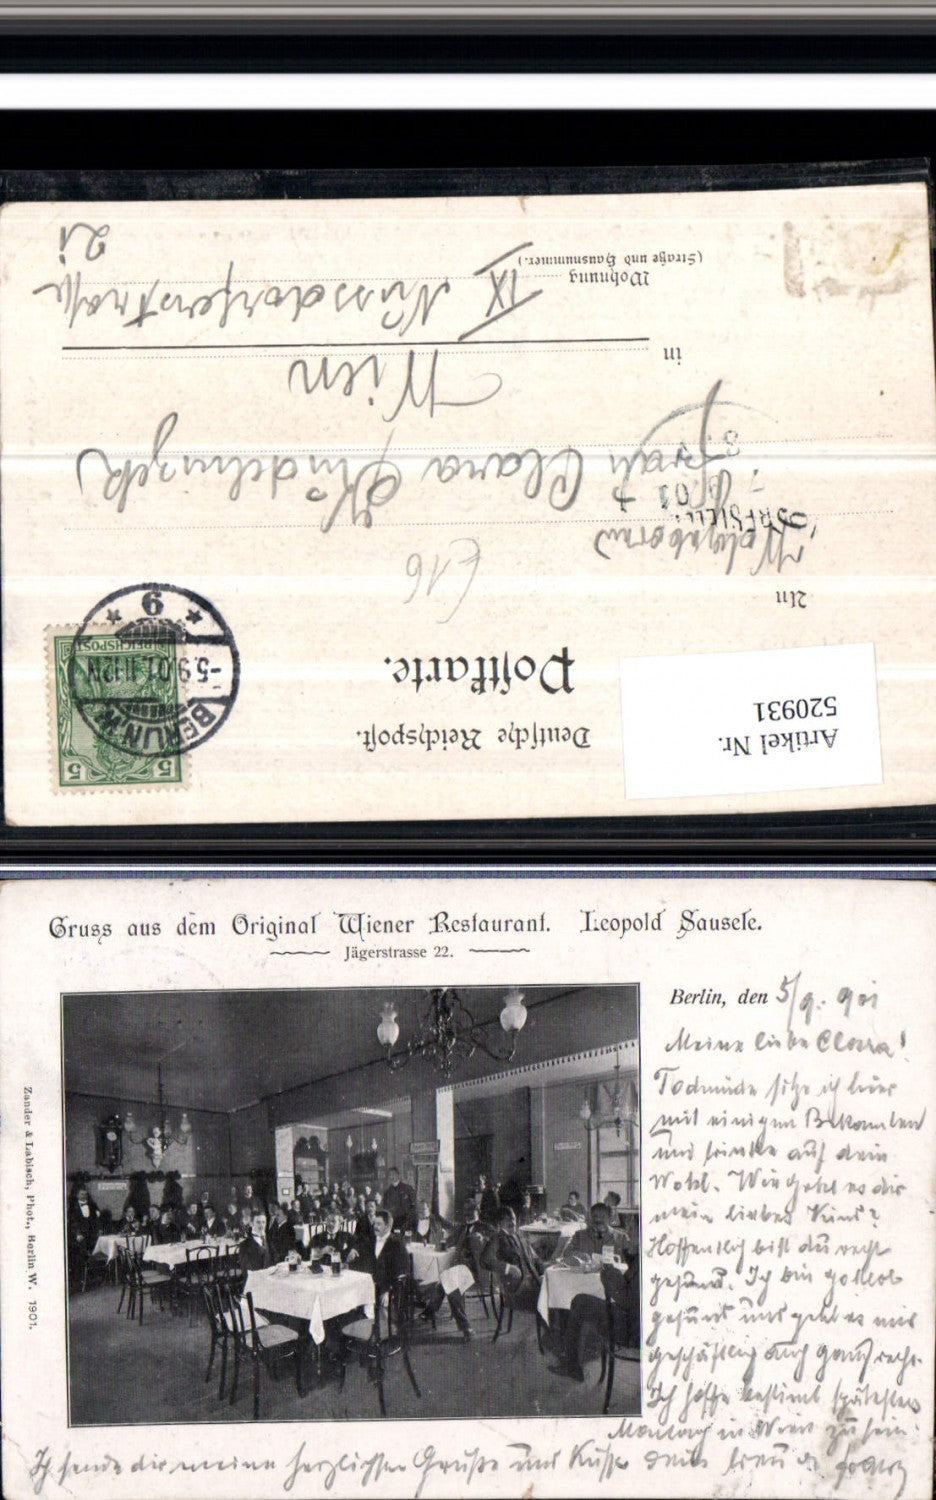 Artikel Nr.
520931
Deutsche Reichspost.
Postkarte.
5 5
REICHSPOST
BERLIN W.
-5.9.01.11-12V.
* 9 *
An
E16
Wohlgeboren
Frau Clara
in Wien
Wohnung
(Straße und Hausnummer.)
IX Nussdorferstrasse
21
Gruss aus dem Original Wiener Restaurant. Leopold Sausele.
Jägerstrasse 22.
Zander & Labisch, Phot., Berlin W. 1901.
Berlin, den 5/9. 901
Meine liebe Clara!
Todmüde sitze ich hier
mit einigen Bekannten
und trinke auf dein
Wohl. Wie geht es dir
mein liebes Kind?
Hoffentlich bist du recht
gesund. Ich bin gottlob
gesund und geht es mir
geschäftlich auch ganz recht.
Ich hoffe bestimmt spätestens
Montag in Wien zu sein.
Ich sende dir meine herzlichsten Grüße und Küsse dein treu